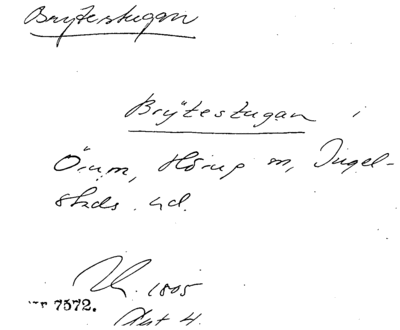 Brytestugan
Brytestugan i
Örum, Hörup sn, Ingel-
stads hd.
1805
7572.